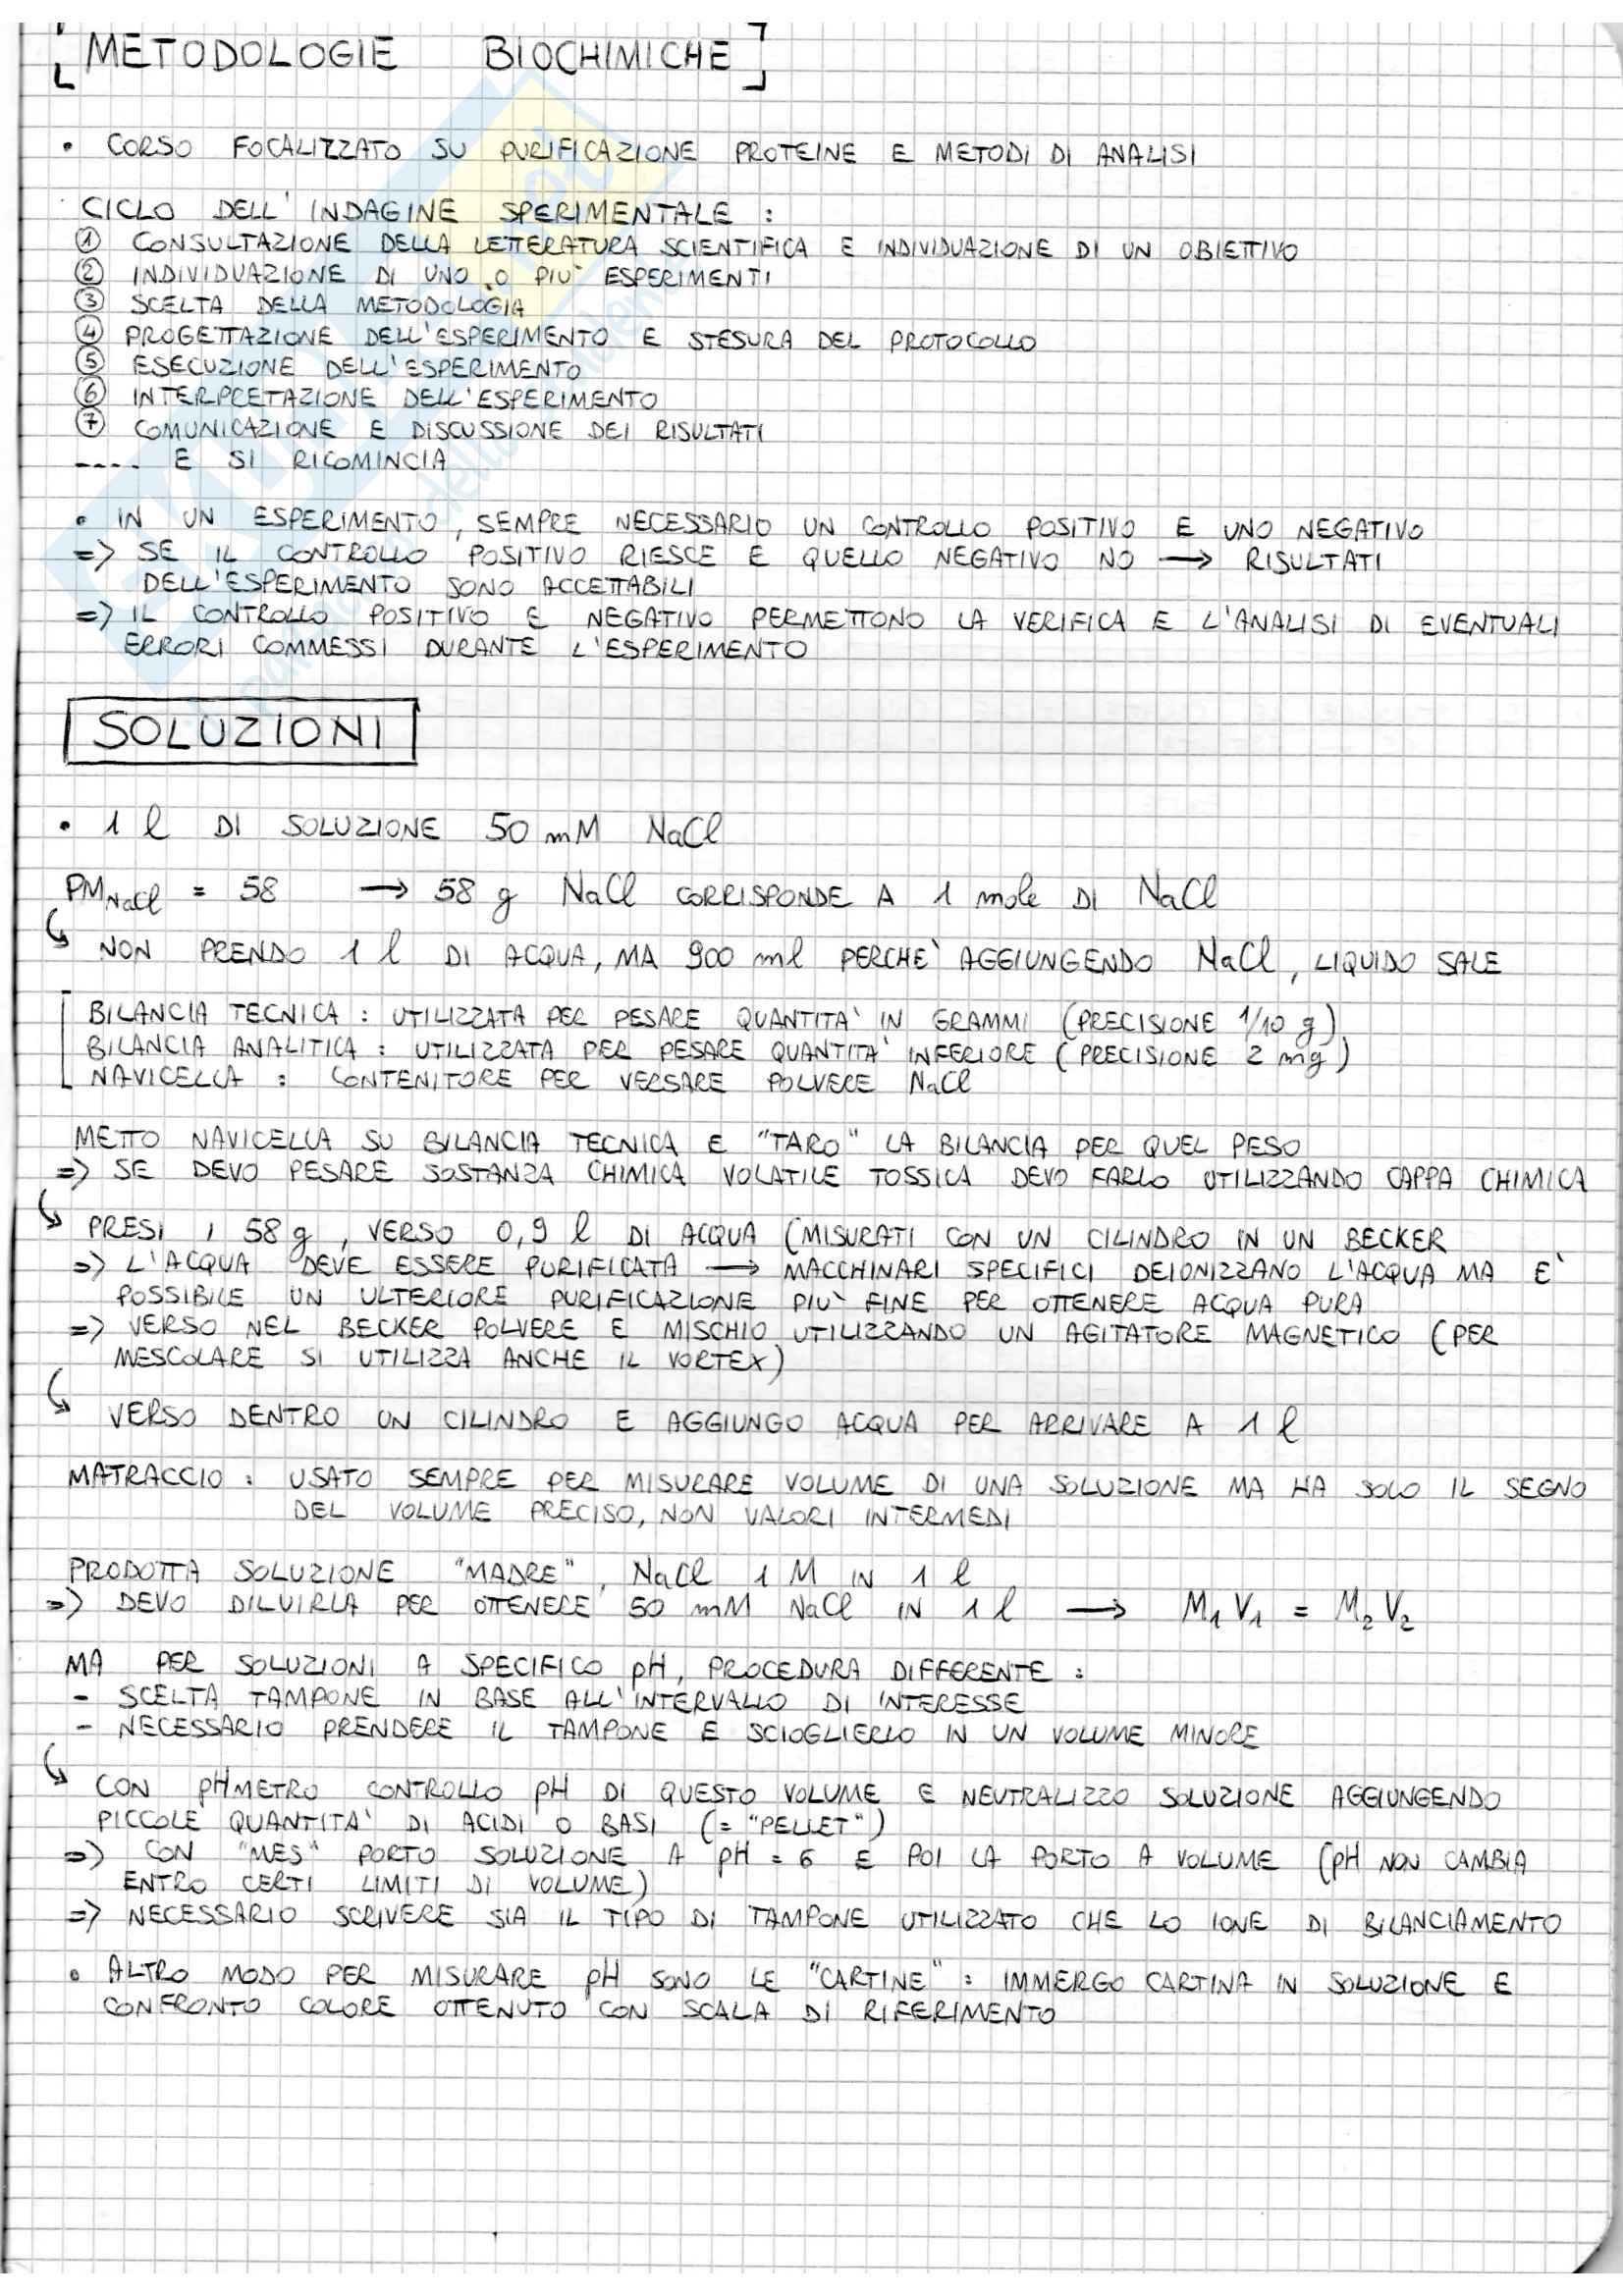 [METODOLOGIE BIOCHIMICHE]
• CORSO FOCALIZZATO SU PURIFICAZIONE PROTEINE E METODI DI ANALISI
CICLO DELL'INDAGINE SPERIMENTALE :
① CONSULTAZIONE DELLA LETTERATURA SCIENTIFICA E INDIVIDUAZIONE DI UN OBIETTIVO
② INDIVIDUAZIONE DI UNO O PIU' ESPERIMENTI
③ SCELTA DELLA METODOLOGIA
④ PROGETTAZIONE DELL'ESPERIMENTO E STESURA DEL PROTOCOLLO
⑤ ESECUZIONE DELL'ESPERIMENTO
⑥ INTERPRETAZIONE DELL'ESPERIMENTO
⑦ COMUNICAZIONE E DISCUSSIONE DEI RISULTATI
---- E SI RICOMINCIA
• IN UN ESPERIMENTO, SEMPRE NECESSARIO UN CONTROLLO POSITIVO E UNO NEGATIVO
=> SE IL CONTROLLO POSITIVO RIESCE E QUELLO NEGATIVO NO → RISULTATI
DELL'ESPERIMENTO SONO ACCETTABILI
=> IL CONTROLLO POSITIVO E NEGATIVO PERMETTONO LA VERIFICA E L'ANALISI DI EVENTUALI
ERRORI COMMESSI DURANTE L'ESPERIMENTO
SOLUZIONI
• 1 l DI SOLUZIONE 50 mM NaCl
PM NaCl = 58 → 58 g NaCl CORRISPONDE A 1 mole DI NaCl
↳ NON PRENDO 1 l DI ACQUA, MA 900 ml PERCHE' AGGIUNGENDO NaCl, LIQUIDO SALE
BILANCIA TECNICA : UTILIZZATA PER PESARE QUANTITA' IN GRAMMI (PRECISIONE 1/10 g)
BILANCIA ANALITICA : UTILIZZATA PER PESARE QUANTITA' INFERIORE (PRECISIONE 2 mg)
NAVICELLA : CONTENITORE PER VERSARE POLVERE NaCl
METTO NAVICELLA SU BILANCIA TECNICA E "TARO" LA BILANCIA PER QUEL PESO
=> SE DEVO PESARE SOSTANZA CHIMICA VOLATILE TOSSICA DEVO FARLO UTILIZZANDO CAPPA CHIMICA
↳ PRESI I 58 g, VERSO 0,9 l DI ACQUA (MISURATI CON UN CILINDRO IN UN BECKER
=> L'ACQUA DEVE ESSERE PURIFICATA → MACCHINARI SPECIFICI DEIONIZZANO L'ACQUA MA E'
POSSIBILE UN ULTERIORE PURIFICAZIONE PIU' FINE PER OTTENERE ACQUA PURA
=> VERSO NEL BECKER POLVERE E MISCHIO UTILIZZANDO UN AGITATORE MAGNETICO (PER
MESCOLARE SI UTILIZZA ANCHE IL VORTEX)
↳ VERSO DENTRO UN CILINDRO E AGGIUNGO ACQUA PER ARRIVARE A 1 l
MATRACCIO : USATO SEMPRE PER MISURARE VOLUME DI UNA SOLUZIONE MA HA SOLO IL SEGNO
DEL VOLUME PRECISO, NON VALORI INTERMEDI
PRODOTTA SOLUZIONE "MADRE", NaCl 1 M IN 1 l
=> DEVO DILUIRLA PER OTTENERE 50 mM NaCl IN 1 l → M₁V₁ = M₂V₂
MA PER SOLUZIONI A SPECIFICO pH, PROCEDURA DIFFERENTE :
- SCELTA TAMPONE IN BASE ALL'INTERVALLO DI INTERESSE
- NECESSARIO PRENDERE IL TAMPONE E SCIOGLIERLO IN UN VOLUME MINORE
↳ CON pHMETRO CONTROLLO pH DI QUESTO VOLUME E NEUTRALIZZO SOLUZIONE AGGIUNGENDO
PICCOLE QUANTITA' DI ACIDI O BASI (= "PELLET")
=> CON "MES" PORTO SOLUZIONE A pH = 6 E POI LA PORTO A VOLUME (pH NON CAMBIA
ENTRO CERTI LIMITI DI VOLUME)
=> NECESSARIO SCRIVERE SIA IL TIPO DI TAMPONE UTILIZZATO CHE LO IONE DI BILANCIAMENTO
• ALTRO MODO PER MISURARE pH SONO LE "CARTINE" : IMMERGO CARTINA IN SOLUZIONE E
CONFRONTO COLORE OTTENUTO CON SCALA DI RIFERIMENTO